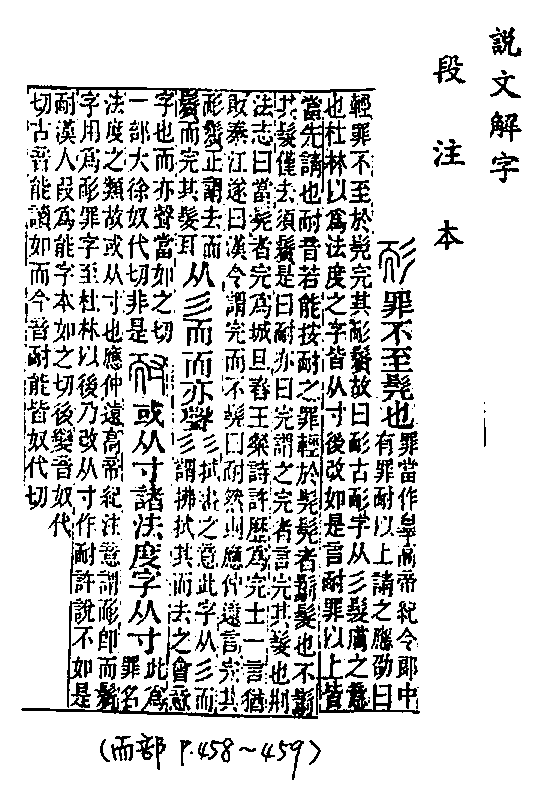 說文解字
段注本
耏罪不至髡也
罪當作辠高帝紀令郎中
有罪耐以上請之應劭曰
輕罪不至於髡完其耏鬢故曰耏古耏字从彡髮膚之意
也杜林以爲法度之字皆从寸後改如是言耐罪以上皆
當先請也耐音若能按耐之罪輕於髡髡者鬀髮也不鬀
其髮僅去須鬢是曰耐亦曰完謂之完者言完其髮也刑
法志曰當髡者完爲城旦舂王粲詩許歷爲完士一言猶
敗秦江遂曰漢令謂完而不髡曰耐然則應仲遠言完其
耏鬢正謂去而
鬢而完其髮耳
从彡而而亦聲
彡拭畫之意此字从彡而
彡謂拂拭其而去之會意
字也而亦聲當如之切
一部大徐奴代切非是
耐或从寸諸法度字从寸
此爲
罪名
法度之類故或从寸也應仲遠高帝紀注意謂耏卽而鬢
字用爲耏罪字至杜林以後乃改从寸作耐許說不如是
耐漢人叚爲能字本如之切後變音奴代
切古音能讀如而今音耐能皆奴代切
(而部 P.458~459)